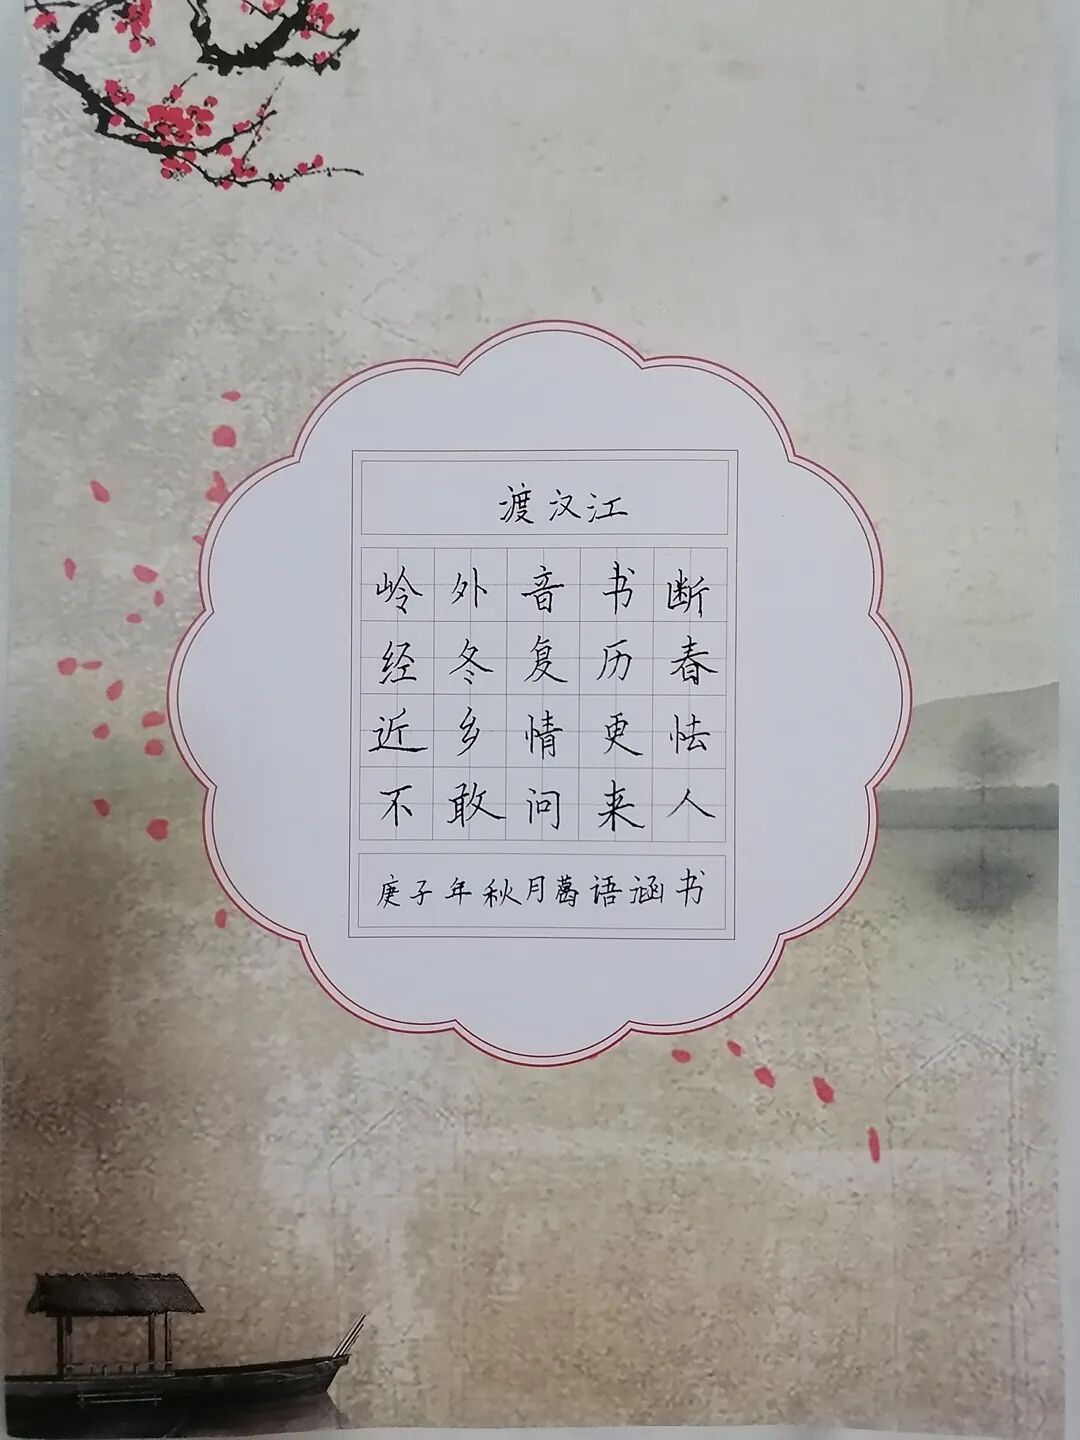 渡汉江
岭外音书断
经冬复历春
近乡情更怯
不敢问来人
庚子年秋月葛语涵书